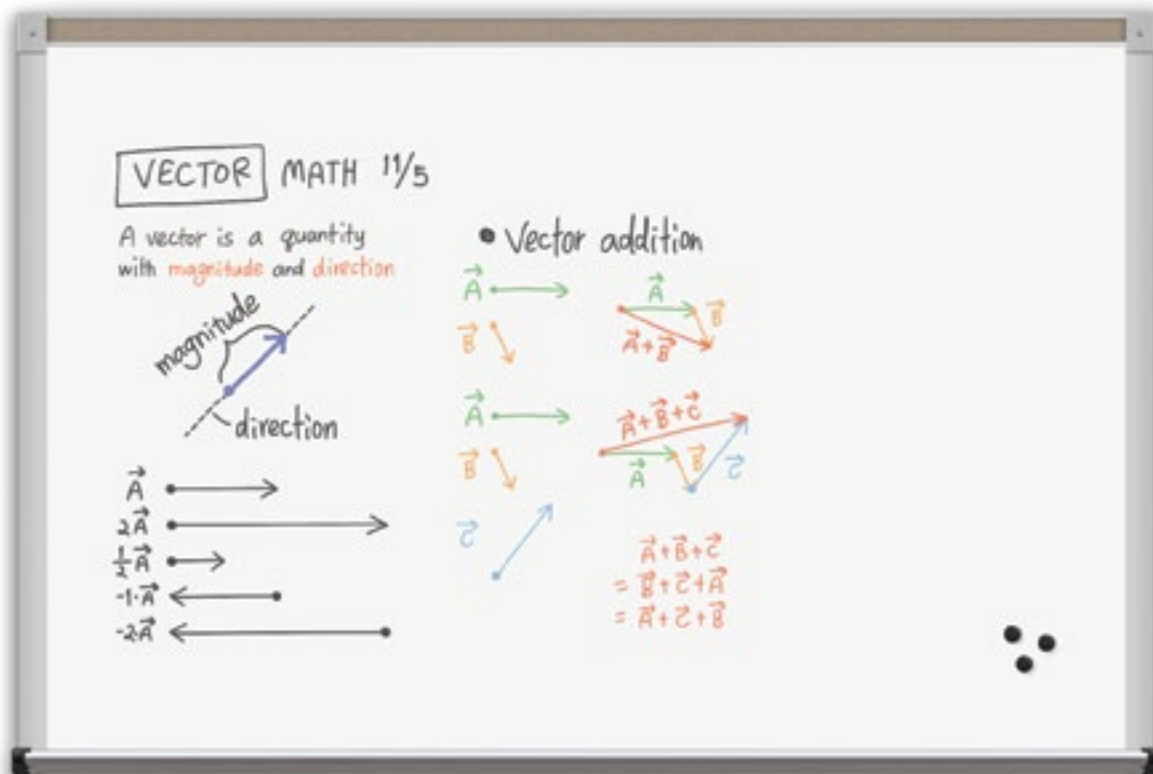 VECTOR MATH 11/5
A vector is a quantity
with magnitude and direction
magnitude
direction
A⃗
2A⃗
½A⃗
-1·A⃗
-2A⃗
• Vector addition
A⃗
B⃗
A⃗
B⃗
A⃗+B⃗
A⃗
B⃗
C⃗
A⃗+B⃗+C⃗
A⃗
B⃗
C⃗
A⃗+B⃗+C⃗
= B⃗+C⃗+A⃗
= A⃗+C⃗+B⃗